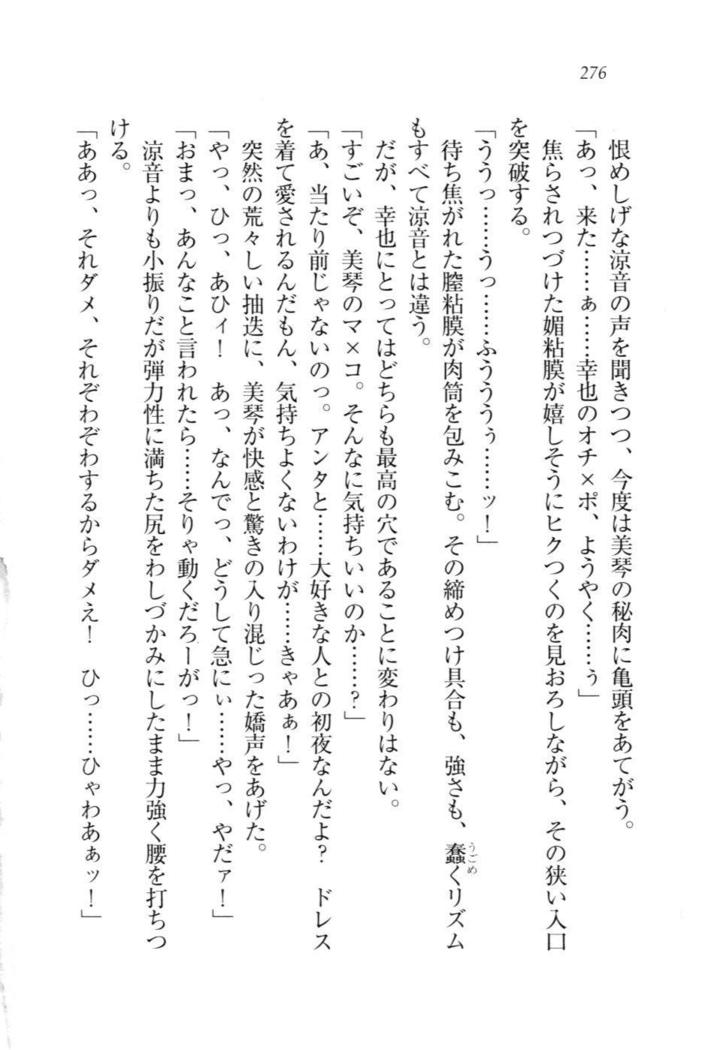 276
恨めしげな涼音の声を聞きつつ、今度は美琴の秘肉に亀頭をあてがう。
「あっ、来た……ぁ……幸也のオチ×ポ、ようやく……ぅ」
焦らされつづけた媚粘膜が嬉しそうにヒクつくのを見おろしながら、その狭い入口
を突破する。
「ううっ……うっ……ふうううぅ……ッ！」
待ち焦がれた膣粘膜が肉筒を包みこむ。その締めつけ具合も、強さも、蠢くリズム
うごめ
もすべて涼音とは違う。
だが、幸也にとってはどちらも最高の穴であることに変わりはない。
「すごいぞ、美琴のマ×コ。そんなに気持ちいいのか……？」
「あ、当たり前じゃないのっ。アンタと……大好きな人との初夜なんだよ？　ドレス
を着て愛されるんだもん、気持ちよくないわけが……きゃあぁ！」
突然の荒々しい抽迭に、美琴が快感と驚きの入り混じった嬌声をあげた。
「やっ、ひっ、あひィ！　あっ、なんでっ、どうして急にぃ……やっ、やだァ！」
「おまっ、あんなこと言われたら……そりゃ動くだろーがっ！」
涼音よりも小振りだが弾力性に満ちた尻をわしづかみにしたまま力強く腰を打ちつ
ける。
「ああっ、それダメ、それぞわぞわするからダメえ！　ひっ……ひゃわあぁッ！」